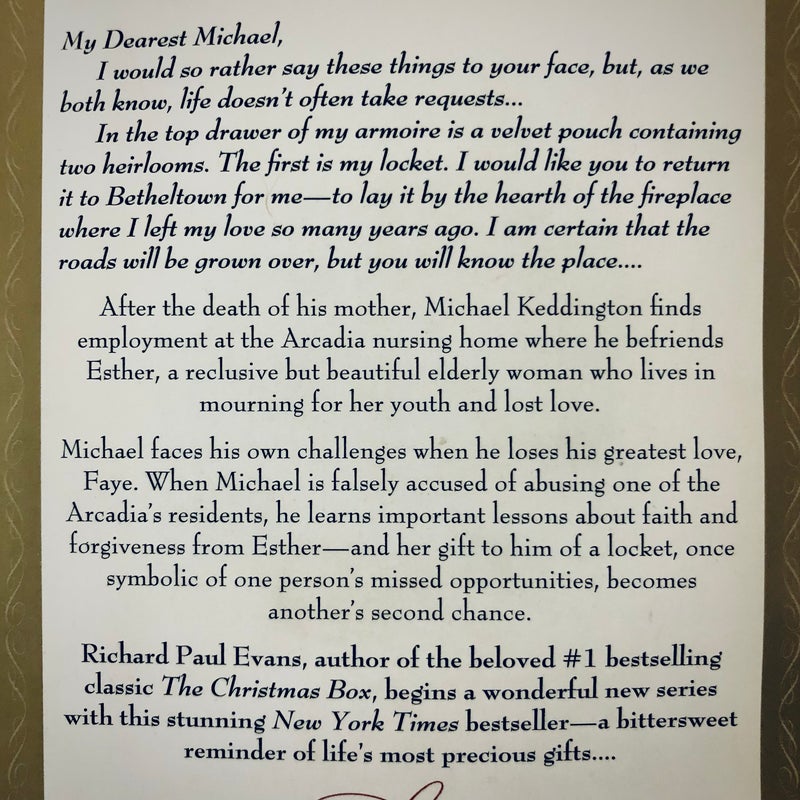 My Dearest Michael,
I would so rather say these things to your face, but, as we
both know, life doesn't often take requests...
In the top drawer of my armoire is a velvet pouch containing
two heirlooms. The first is my locket. I would like you to return
it to Betheltown for me—to lay it by the hearth of the fireplace
where I left my love so many years ago. I am certain that the
roads will be grown over, but you will know the place....
After the death of his mother, Michael Keddington finds
employment at the Arcadia nursing home where he befriends
Esther, a reclusive but beautiful elderly woman who lives in
mourning for her youth and lost love.
Michael faces his own challenges when he loses his greatest love,
Faye. When Michael is falsely accused of abusing one of the
Arcadia's residents, he learns important lessons about faith and
forgiveness from Esther—and her gift to him of a locket, once
symbolic of one person's missed opportunities, becomes
another's second chance.
Richard Paul Evans, author of the beloved #1 bestselling
classic The Christmas Box, begins a wonderful new series
with this stunning New York Times bestseller—a bittersweet
reminder of life's most precious gifts....